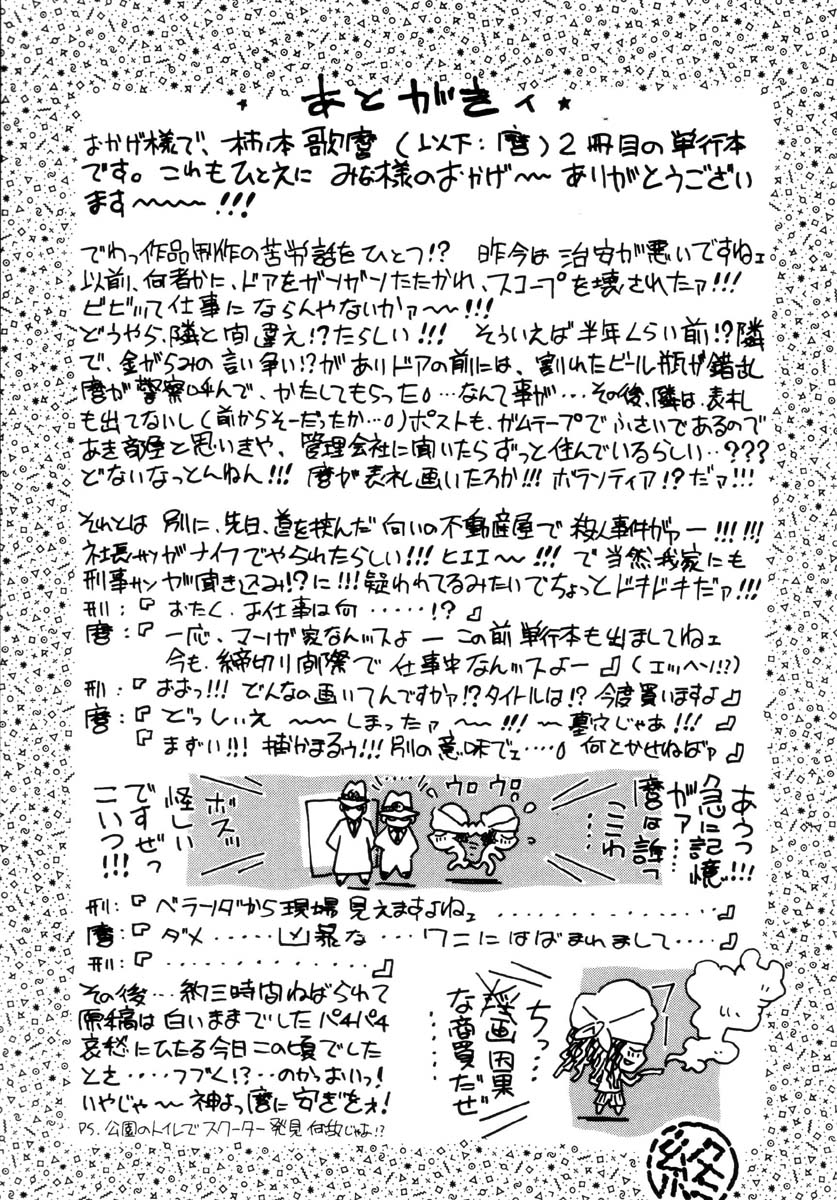 あとがきィ
おかげ様で、柿ノ本歌麿（以下：麿）2冊目の単行本
です。これもひとえに みな様のおかげ〜〜 ありがとうござい
ます〜〜〜!!!
でわっ作品制作の苦労話をひとつ!? 昨今は治安が悪いですねェ
以前、何者かに、ドアをガンガンたたかれ、スコープを壊されたァ!!!
ビビッて仕事にならんやないかァ〜〜!!!
どうやら、隣と間違え!?たらしい!!! そういえば半年くらい前!?隣
で、金がらみの言い争い!?がありドアの前には、割れたビール瓶が錯乱
麿が警察呼んで、かたしてもらった。…なんて事が…その後、隣は、表札
も出てないし（前からそーだったか…。）ポストも、ガムテープでふさいであるので
あき部屋と思いきや、管理会社に聞いたらずっと住んでいるらしい…???
どないなっとんねん!!! 麿が表札画いたろか!!! ボランティア!?だァ!!!
それとは別に、先日、道を挟んだ向いの不動産屋で殺人事件がァー!!!!!!
社長サンがナイフでやられたらしい!!!ヒエエ〜!!!で当然我家にも
刑事サンが聞き込み!?に!!!疑われてるみたいでちょっとドキドキだァ!!!
刑：『おたく、お仕事は何……!?』
麿：『一応、マンガ家なんッスよー この前単行本も出ましてねェ
今も、締切り間際で仕事中なんッスよー』（エッヘン!?）
刑：『おおっ!!! どんなの画いてんですかァ!?タイトルは!? 今度買いますよ』
麿：『どっしぃえ〜〜しまったァ〜〜!!!〜墓穴じゃあ!!!
『まずい!!! 捕かまるゥ!!!別の意味でェ…。何とかせねばァ』
あうっ!!!
急に記憶
がァ……
麿は誰っ
ここわ
ウロ ウロ
ボスッ
怪しい
ですぜっ
こいつ!!!
刑：『ベランダから現場見えますよねェ…………』
麿：『ダメ……凶暴な…ワニにはばまれまして…』
刑：『…………』
その後…約三時間ねばられて
原稿は白いままでしたパチパチ
哀愁にひたる今日この頃でした
とさ…つづく!?…のかっおいっ!
いやじゃ〜神よっ麿に安ぎをェ!
PS、公園のトイレでスクーター発見何故じゃ!?
フー
ちっ…
画因果
な商買だぜ